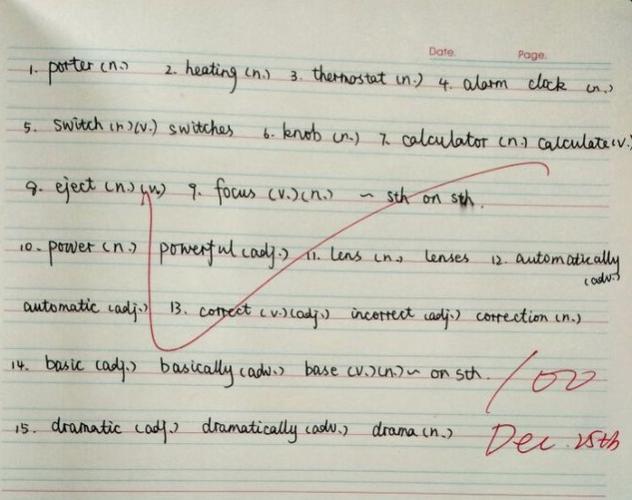 Date. Page.
1. porter (n.) 2. heating (n.) 3. thermostat (n.) 4. alarm clock (n.)
5. switch (n.)(v.) switches 6. knob (n.) 7. calculator (n.) calculate (v.)
8. eject (n.) (v.) 9. focus (v.)(n.) ~ sth on sth.
10. power (n.) powerful (adj.) 11. lens (n.) lenses 12. automatically
(adv.)
automatic (adj.) 13. correct (v.)(adj.) incorrect (adj.) correction (n.)
14. basic (adj.) basically (adv.) base (v.)(n.) ~ on sth.
100
15. dramatic (adj.) dramatically (adv.) drama (n.)
Dec. 25th